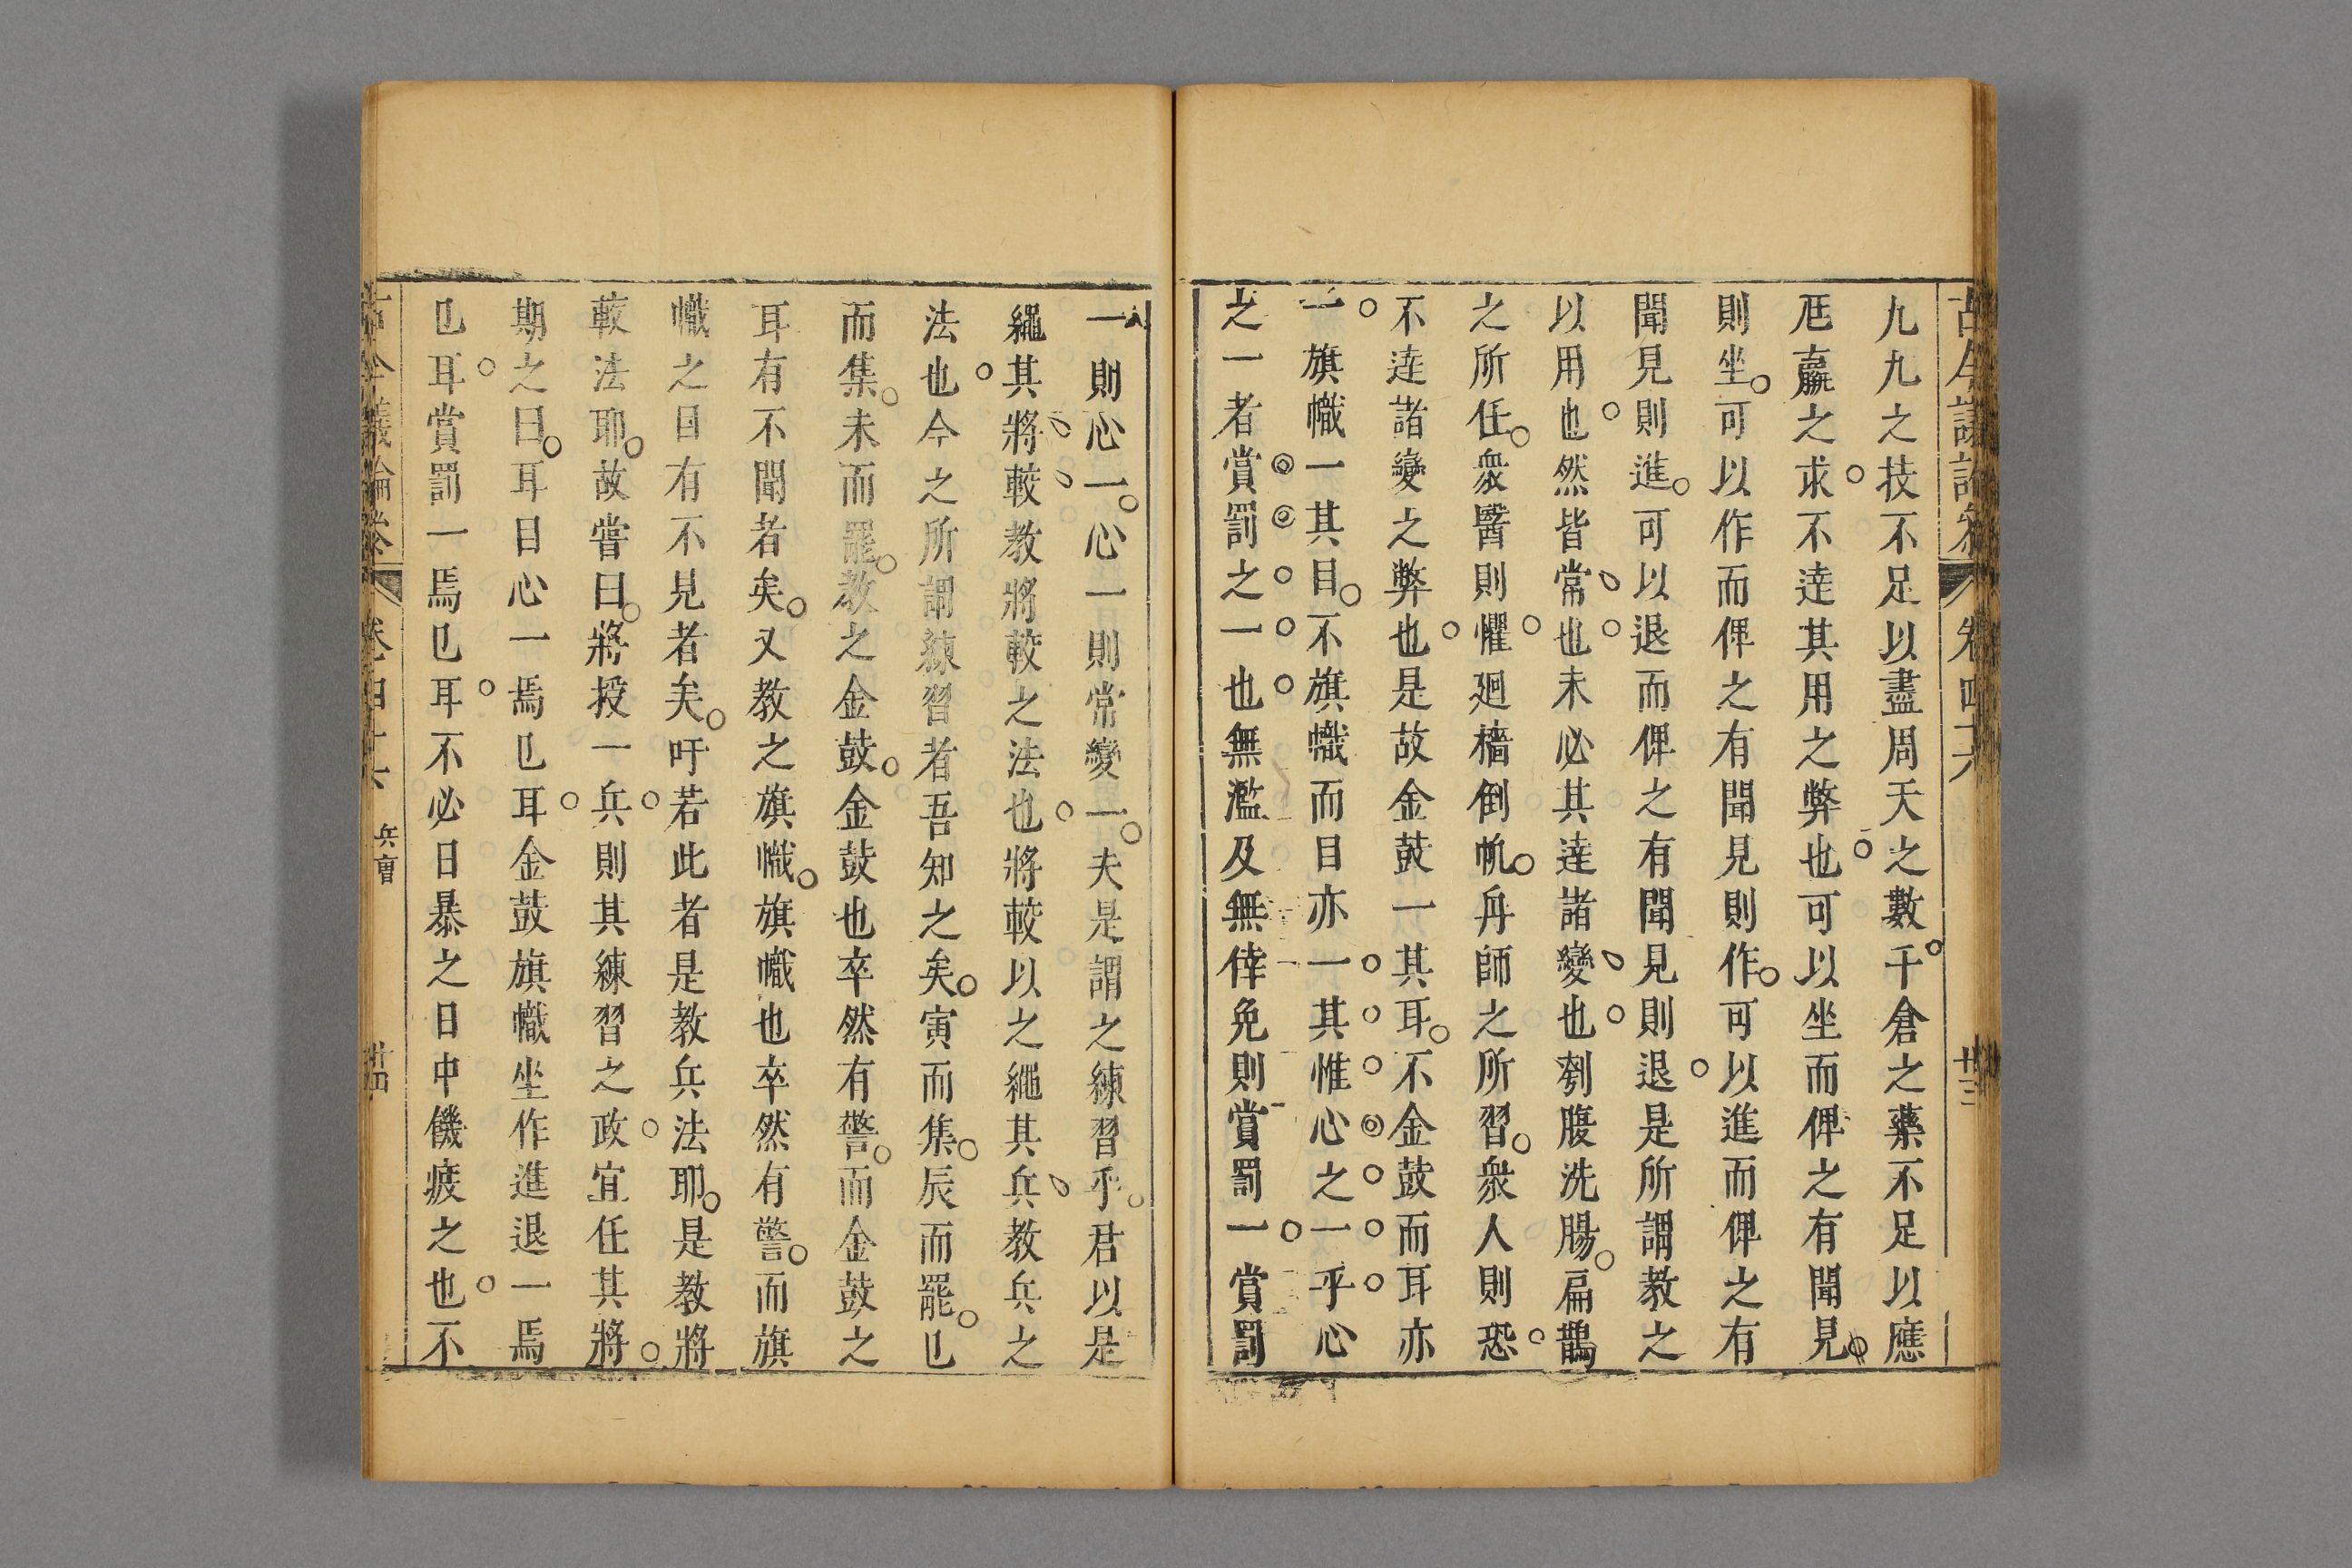 九九之技不足以盡周天之數千倉之藥不足以應
尫羸之求不逹其用之弊也可以坐而俾之有聞見
則坐可以作而俾之有聞見則作可以進而俾之有
聞見則進可以退而俾之有聞見則退是所謂教之
以用也然皆常也未必其逹諸變也刳腹洗腸扁鵲
之所任衆醫則懼廻檣倒帆丹師之所習衆人則恐
不逹諸變之弊也是故金鼓一其耳不金鼓而耳亦
一旗幟一其目不旗幟而目亦一其惟心之一乎心
之一者賞罰之一也無濫及無倖免則賞罰一賞罰
一則心一心一則常變一夫是謂之練習乎君以是
繩其將較教將較之法也將較以之繩其兵教兵之
法也今之所謂練習者吾知之矣寅而集辰而罷巳
而集未而罷教之金鼓金鼓也卒然有警而金鼓之
耳有不聞者矣又教之旗幟旗幟也卒然有警而旗
幟之目有不見者矣吁若此者是教兵法耶是教將
較法耶故嘗曰將授一兵則其練習之政宜任其將
期之曰耳目心一焉巳耳金鼓旗幟坐作進退一焉
巳耳賞罰一焉巳耳不必日暴之日中饑疲之也不
卷四十六 兵曹 廿四